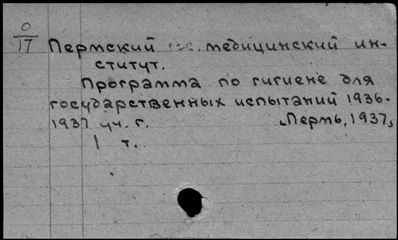 0
17
Пермский гос. медицинский ин-
ститут.
Программа по гигиене для
государственных испытаний 1936-
1937 уч. г. „Пермь, 1937„
1 т.